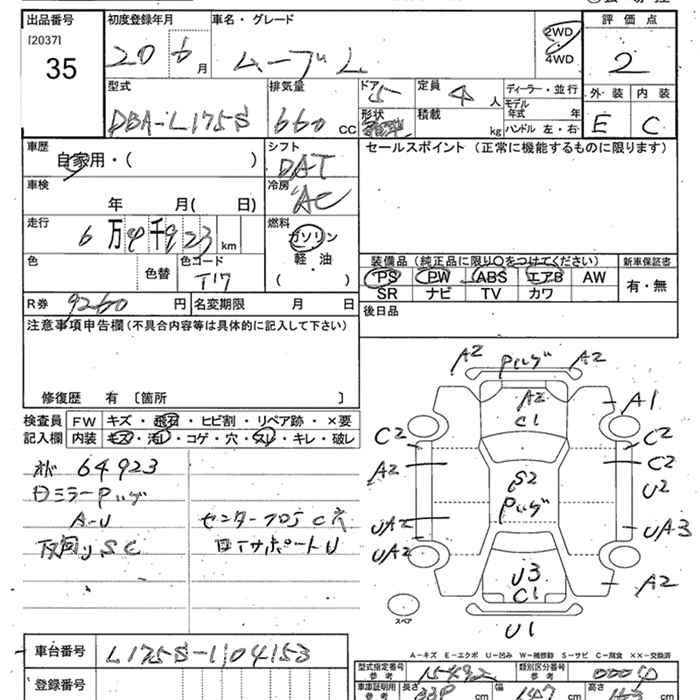 出品番号 初度登録年月 車名・グレード 評価点
[2037]
35
20 6 月 ムーブ L 2WD 4WD 2
型式 排気量 ドア 定員 ディーラー・並行 外装 内装
DBA-L175S 660 CC 5 4 人 モデル年式 年
形状 積載 kg ハンドル 左・右 E C
車歴 シフト セールスポイント (正常に機能するものに限ります)
自家用・( ) DAT
車検 冷房
年 月( 日) AC
走行 燃料
6万4千923 km ガソリン
軽・油
( )
色 色替 色コード T17
装備品 (純正品に限り○をつけてください) 新車保証書
PS PW ABS エアB AW 有・無
SR ナビ TV カワ
R券 9260 円 名変期限 月 日 後日品
注意事項申告欄 (不具合内容等は具体的に記入して下さい)
修復歴 有 〔箇所 〕
検査員記入欄 FW キズ・飛石・ヒビ割・リペア跡・×要
内装 キズ・汚レ・コゲ・穴・スレ・キレ・破レ
64923
A-U
下回り S C
A2 A2
A2
C1
A1
C2 C2
A2 C2
S2 U2
UA2 UA3
UA2 A2
U3
C1
U1
スペア
A-キズ E-エクボ U-凹み W-補修跡 S-サビ C-腐食 XX-交換済
車台番号 L175S-1104153
型式指定番号 参考 15492 類別区分番号 参考
登録番号
車庫証明用 参考 長さ cm 幅 147 cm 高さ cm